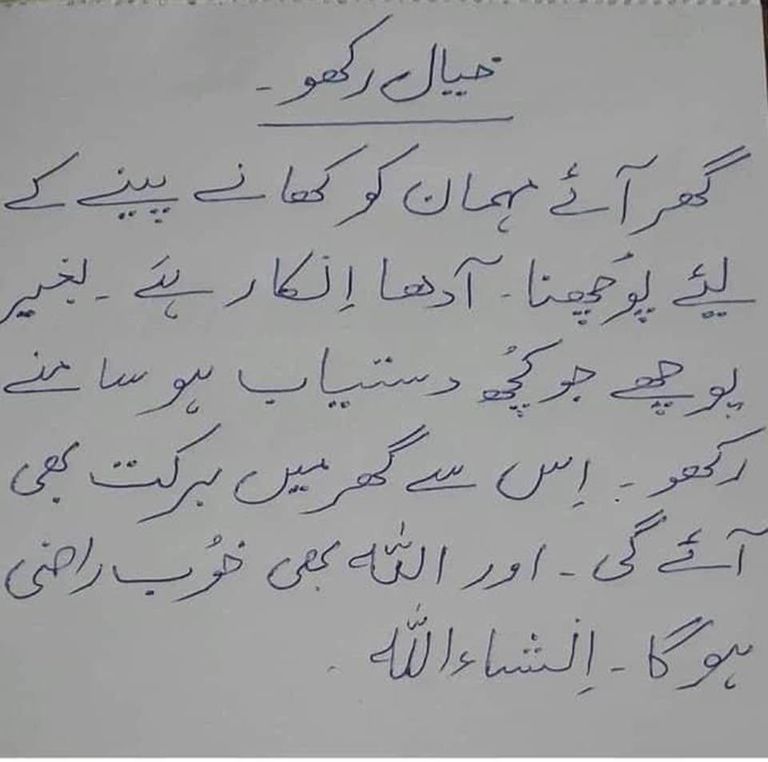 خیال رکھو۔
گھر آئے مہمان کو کھانے پینے کے
لیئے پوُچھنا۔ آدھا اِنکار ہئے۔ بغیر
پوچھے جو کُچھ دستیاب ہو سامنے
رکھو۔ اِس سے گھر میں برکت بھی
آئے گی۔ اور اللّٰہ بھی خوُب راضی
ہوگا۔ اِنشاءاللّٰہ۔